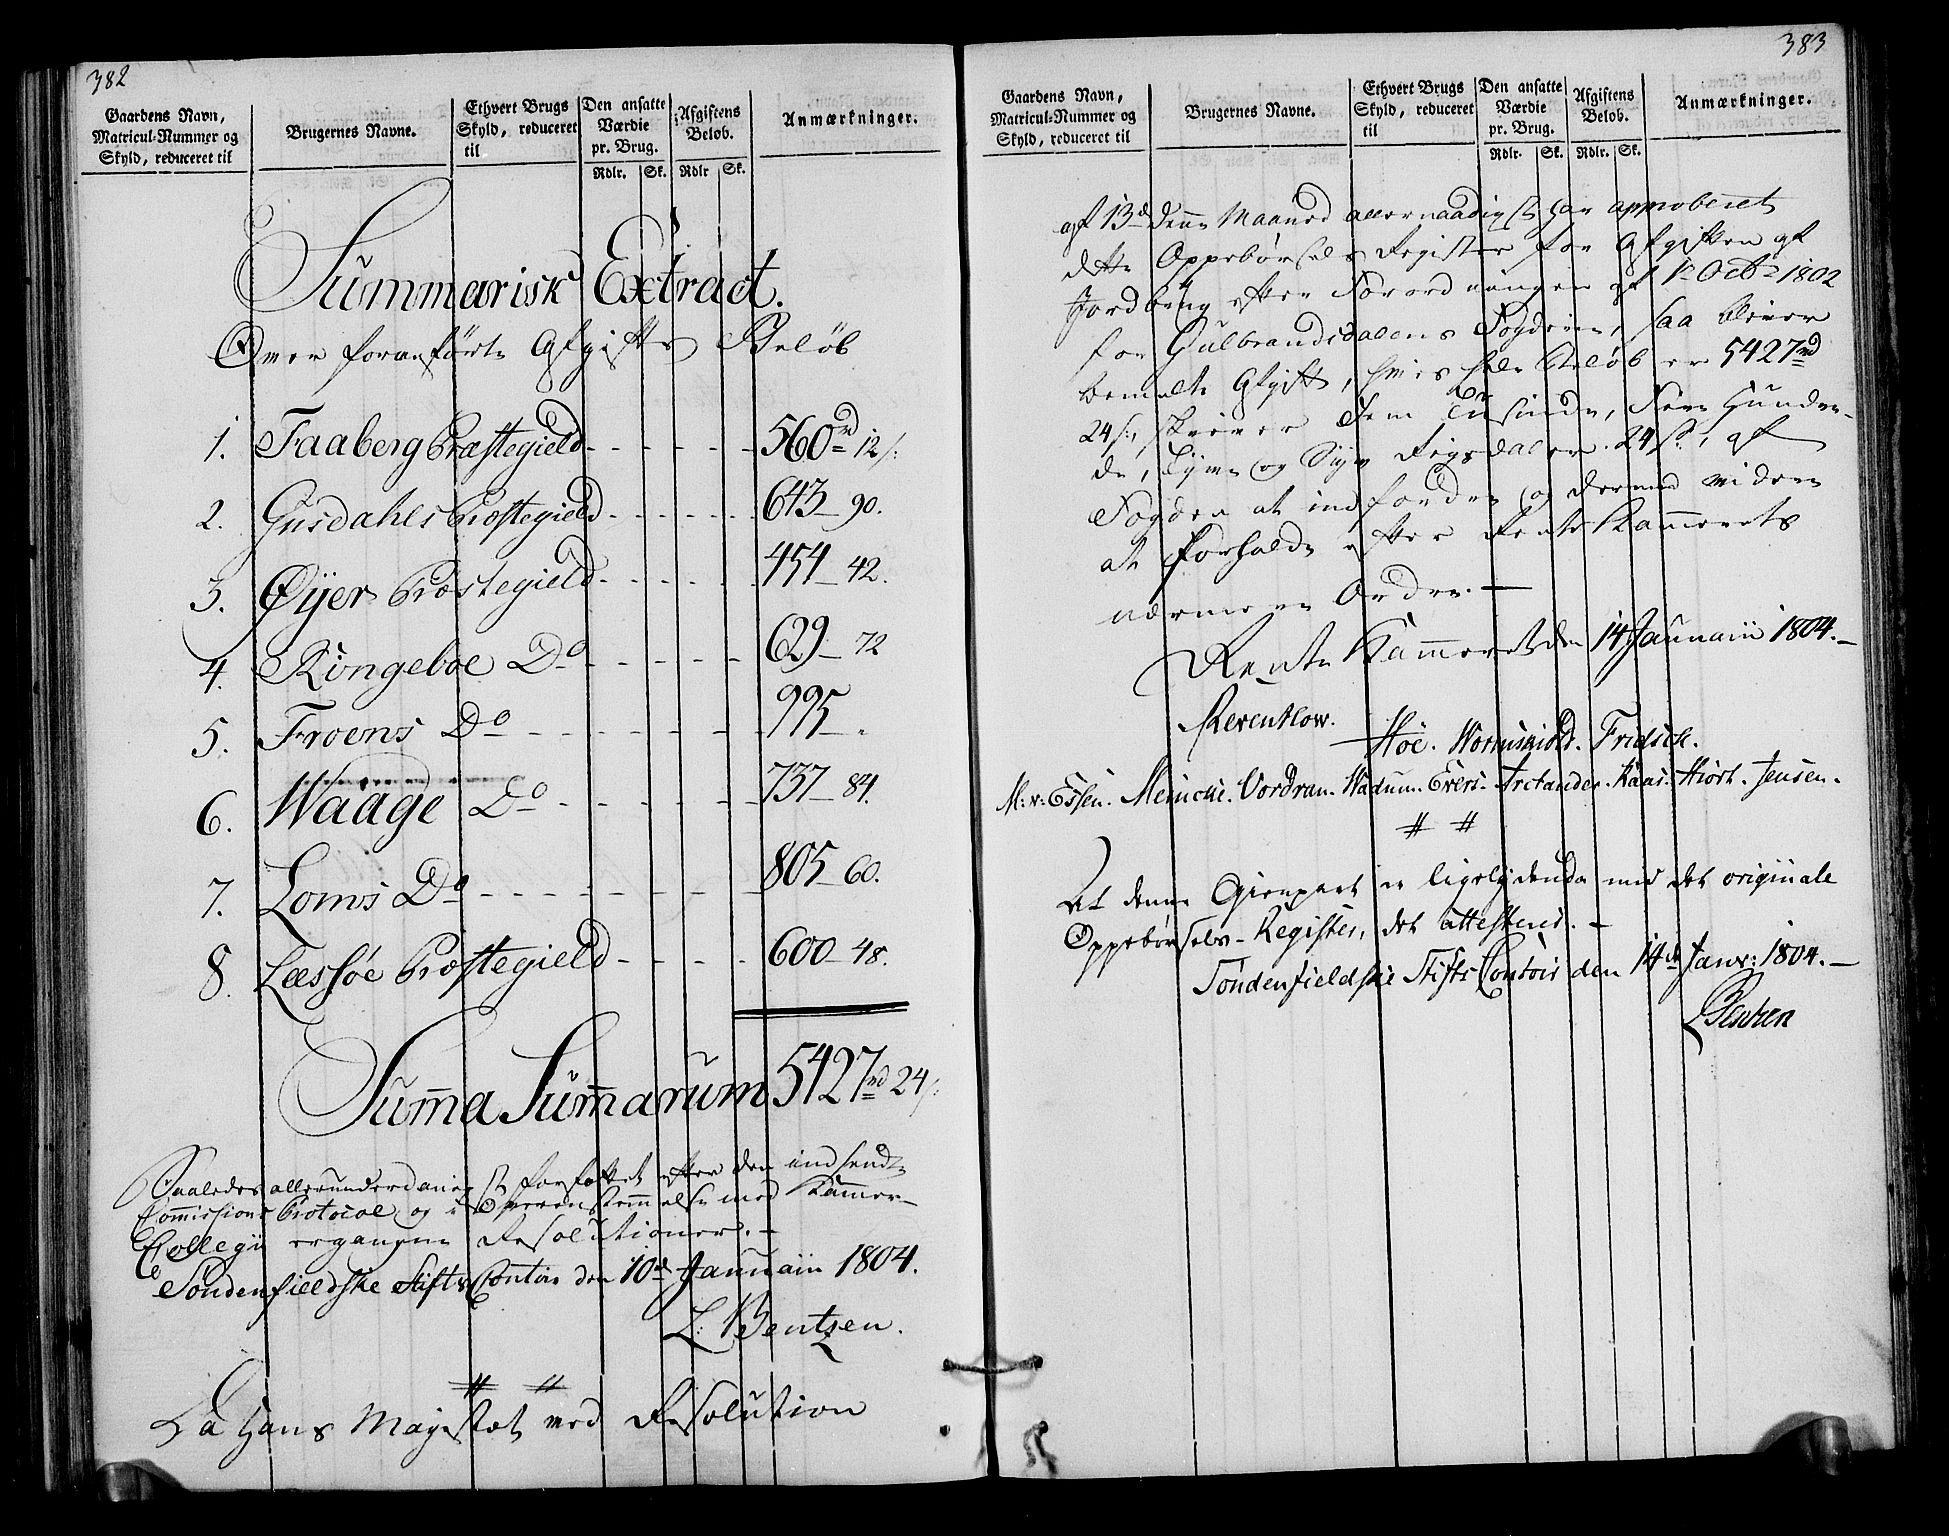 382
Gaardens Navn, Matricul-Nummer og Skyld, reduceret til
Brugernes Navne.
Ethvert Brugs Skyld, reduceret til
Den ansatte Værdie pr. Brug.
Rdlr. Sk.
Afgiftens Beløb.
Rdlr Sk.
Anmærkninger.
Summarisk Extract.
Over foranførte Afgifts Beløb
1. Faaberg Præstegield - - - - - - 560 rd 12 s:
2. Gusdahls Præstegield - - - - - - 643 - 90.
3. Øÿer Præstegield - - - - - - 454 - 42.
4. Ringeboe Do - - - - - - 629 - 72
5. Froens Do - - - - - - 995 - .
6. Waage Do - - - - - - 737 - 84.
7. Loms Do - - - - - - 805 - 60.
8. Læssøe Præstegield - - - - 600 - 48.
Sum̄a Sum̄arum 5427 rd 24 s:
Saaledes allerunderdanigst forfattet efter den indsendte
Commissions Protocol og i Overensstemmelse med Kammer-
Collegii ergangne Resolutioner. -
Søndenfieldske Stifts Contoir den 10de Januarii 1804.
L: Bentzen.
Da Hans Majestæt med Resolution
383
Gaardens Navn, Matricul-Nummer og Skyld, reduceret til
Brugernes Navne.
Ethvert Brugs Skyld, reduceret til
Den ansatte Værdie pr. Brug.
Rdlr. Sk.
Afgiftens Beløb.
Rdlr. Sk.
Anmærkninger.
af 13de denne Maaned allernaadigst har approberet
dette Oppebørsels Register for Afgiften af
Jordbrug efter Forordningen af 1te Octbr 1802
for Gulbrandsdalens Fogderie, saa bliver
bemelte Afgift, hvis hele Beløb er 5427 rd
24 s:, skriver Fem Tusinde, Fire Hundre-
de, Tyve og Syv Rigsdaler 24 s:, af
Fogden at indfordre og dermed videre
at forholde efter Rente Kammerets
nærmere Ordre. -
Rente Kammeret den 14 Januarii 1804. -
Reventlow.
Høe. Wormskiold. Fridsch.
M: v: Essen. Meincke. Vordran. Wadum. Evers. Arctander. Kaas. Hiort. Jensen.
At denne Gienpart er ligelydende med det originale
Oppebørsels-Register, det attesteres. -
Søndenfieldske Stifts Contoir den 14de Janr: 1804. -
LBentzen